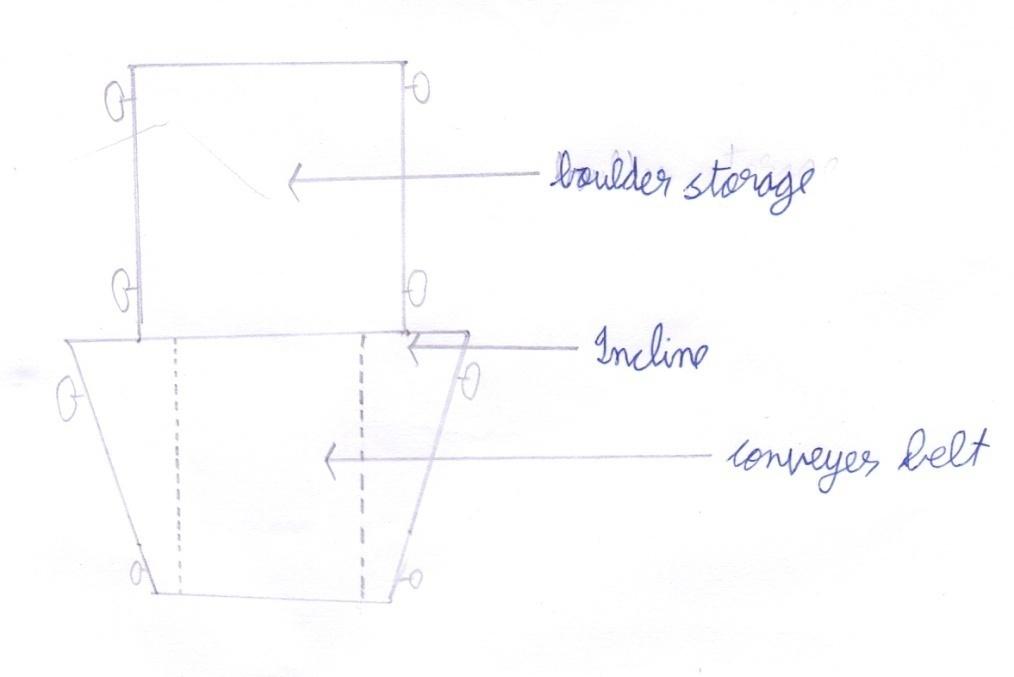 boulder storage
Incline
conveyer belt